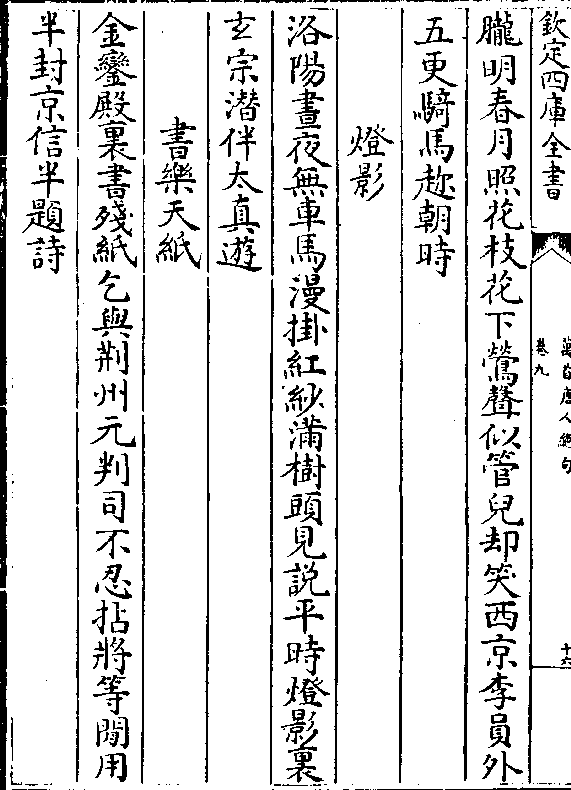 欽定四庫全書
萬首唐人絕句
卷九
十六
朧明春月照花枝花下鶯聲似管兒却笑西京李員外
五更騎馬趂朝時
燈影
洛陽晝夜無車馬漫掛紅紗滿樹頭見説平時燈影裏
玄宗潜伴太真遊
書樂天紙
金鑾殿裏書殘紙乞與荆州元判司不忍拈將等閒用
半封京信半題詩